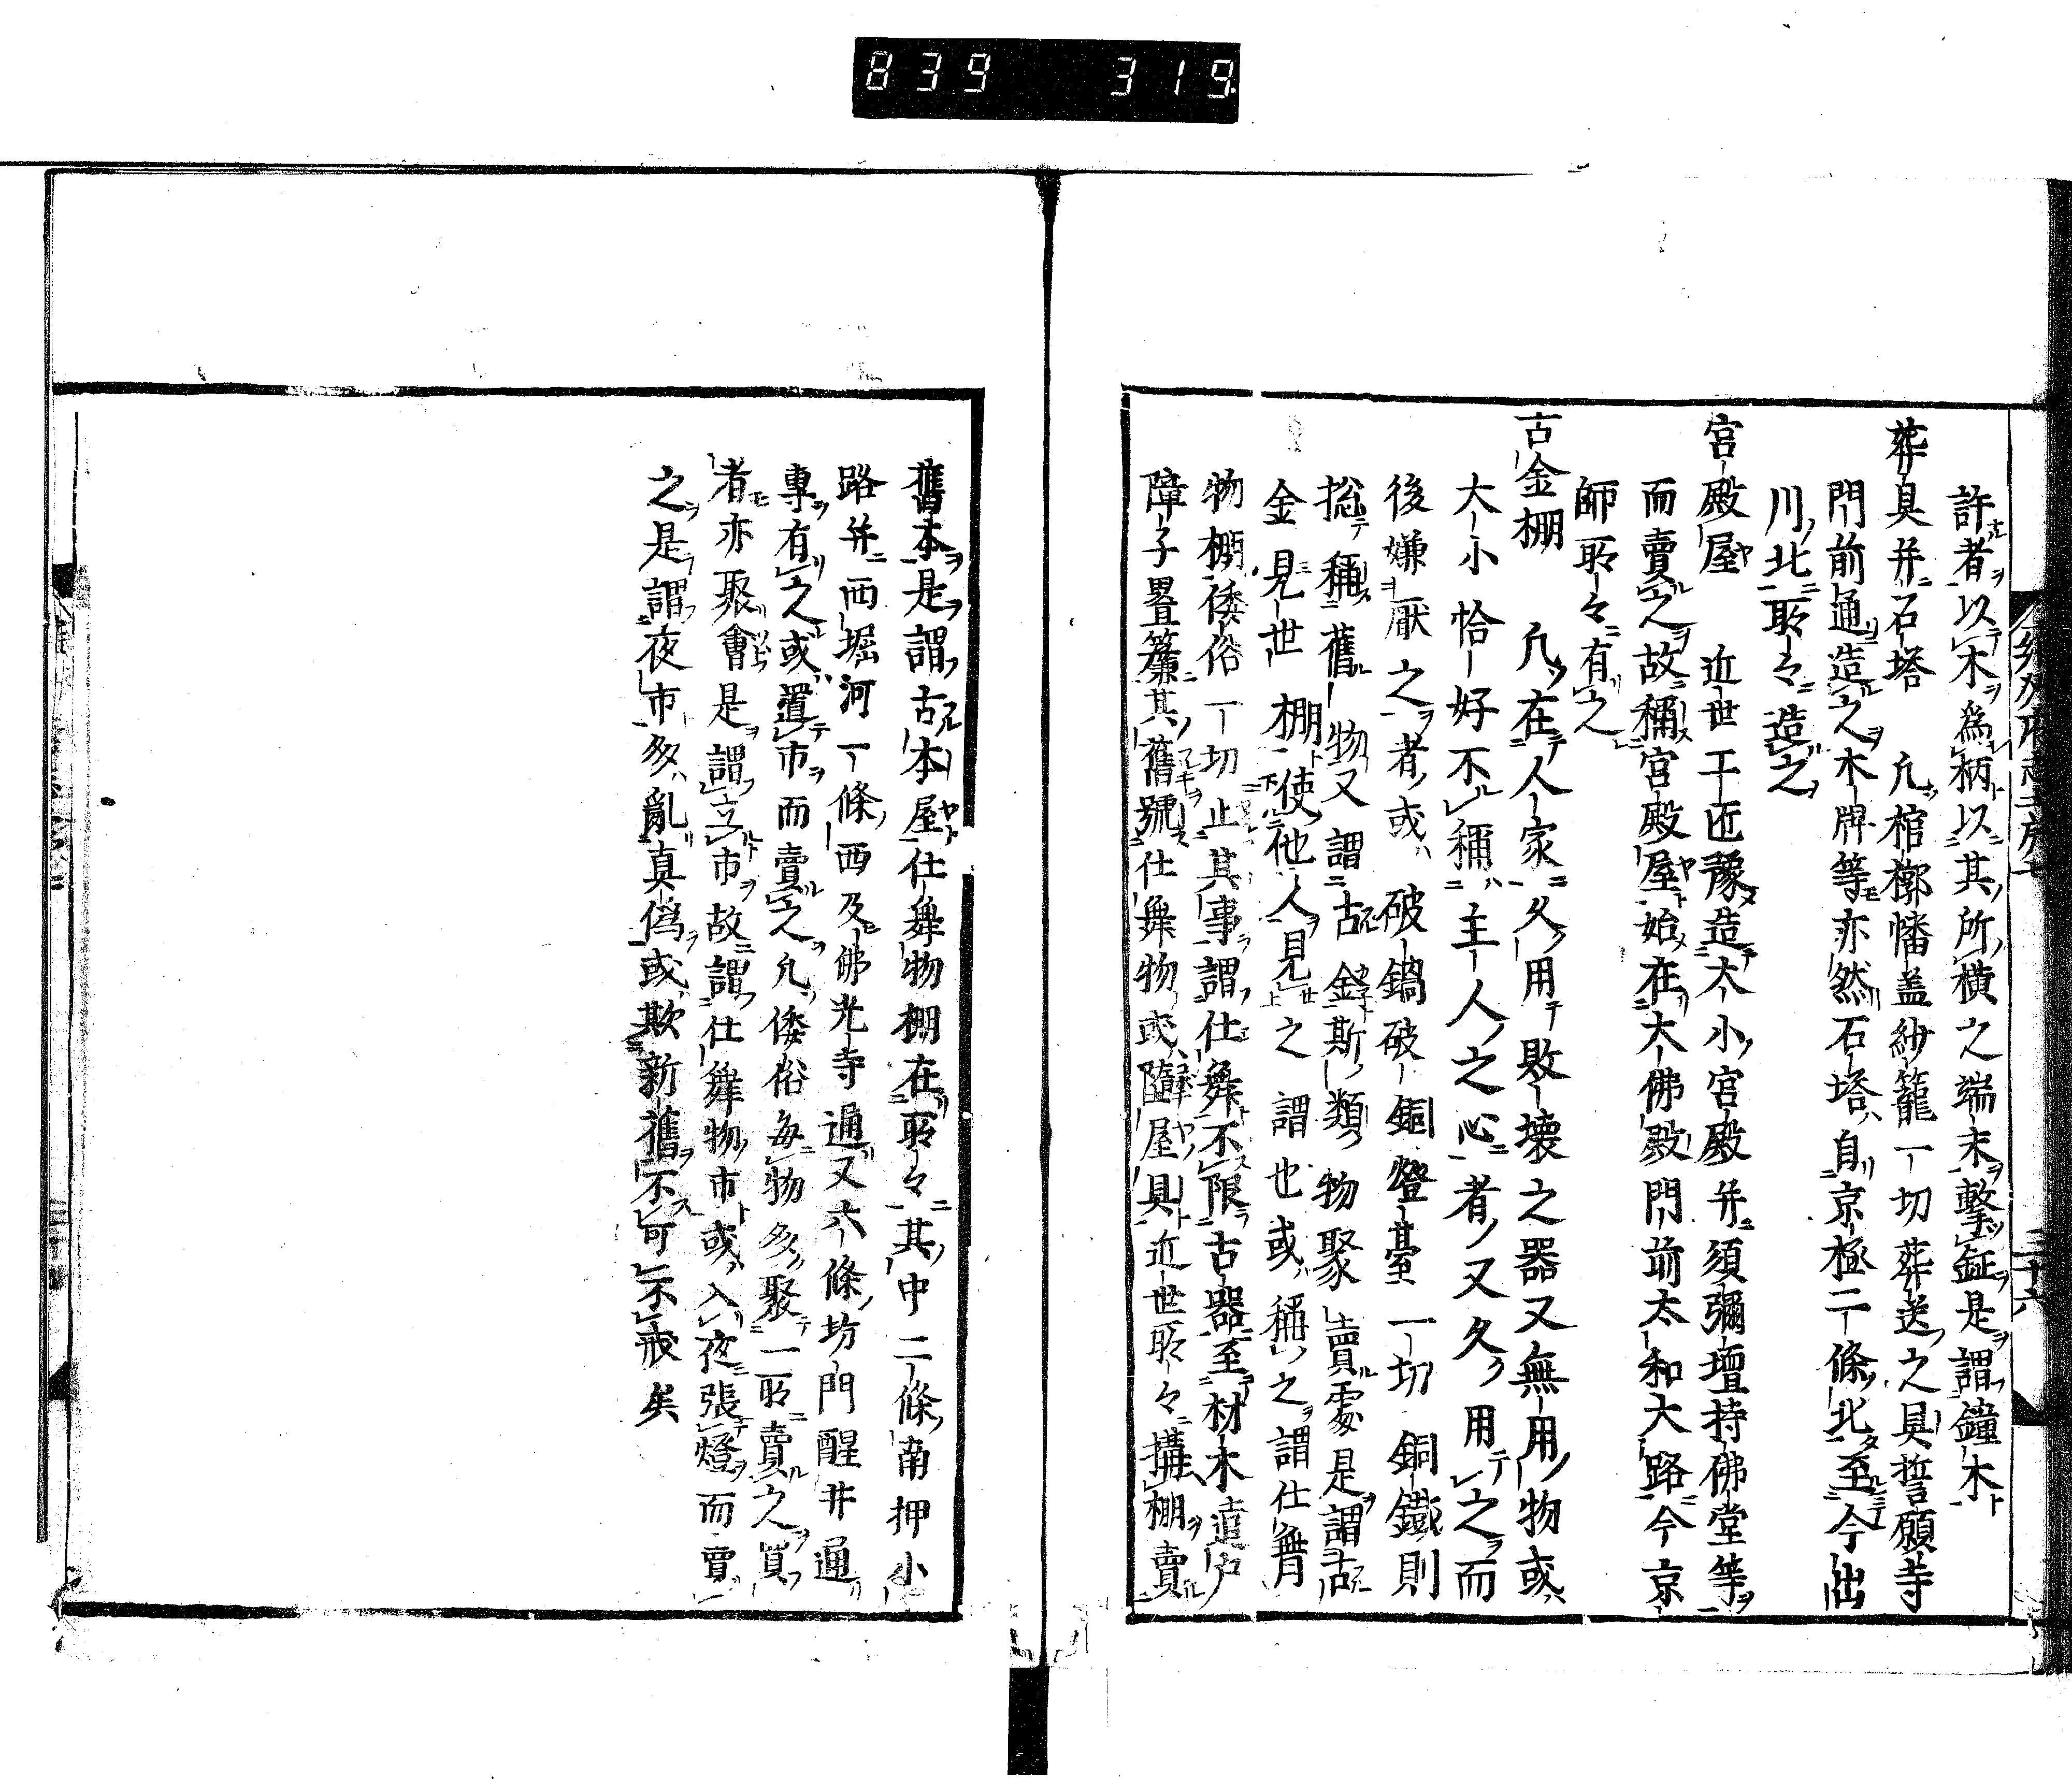 839 319
許者以木爲柄以其所橫之端末撃鉦是謂鐘木
葬具并石塔 凢棺槨幡盖紗籠一切葬送之具誓願寺
門前通造之木牌等亦然石塔自京極二條北至今出
川北取々造之
宮殿屋 近世工匠豫造大小宮殿并須彌壇持佛堂等
而賣之故稱宮殿屋始在大佛殿門前大和大路今京
師取々有之
古金棚 凢在人家久用敗壊之器又無用物或
大小恰好不稱主人之心者又久用之而
後嫌厭之者或破鍋破銅燈臺一切銅鐵則
捴稱舊物又謂古金斯類物聚賣處是謂古
金見世棚使他人見之謂也或稱之謂仕舞
物棚倭俗一切止其事謂仕舞不限古器至材木遣戸
障子畳簾其舊號仕舞物或隨屋具近世取々搆棚賣
舊本是謂古本屋仕舞物棚在取々其中二條南押小
路并西堀河一條西及佛光寺通又六條坊門醒井通
專有之或置市而賣之凢倭俗毎物多聚一取賣之買
者亦聚會是謂立市故謂仕舞物市或入夜張燈而賣
之是謂夜市多亂真僞或欺新舊不可不戒矣
三十六